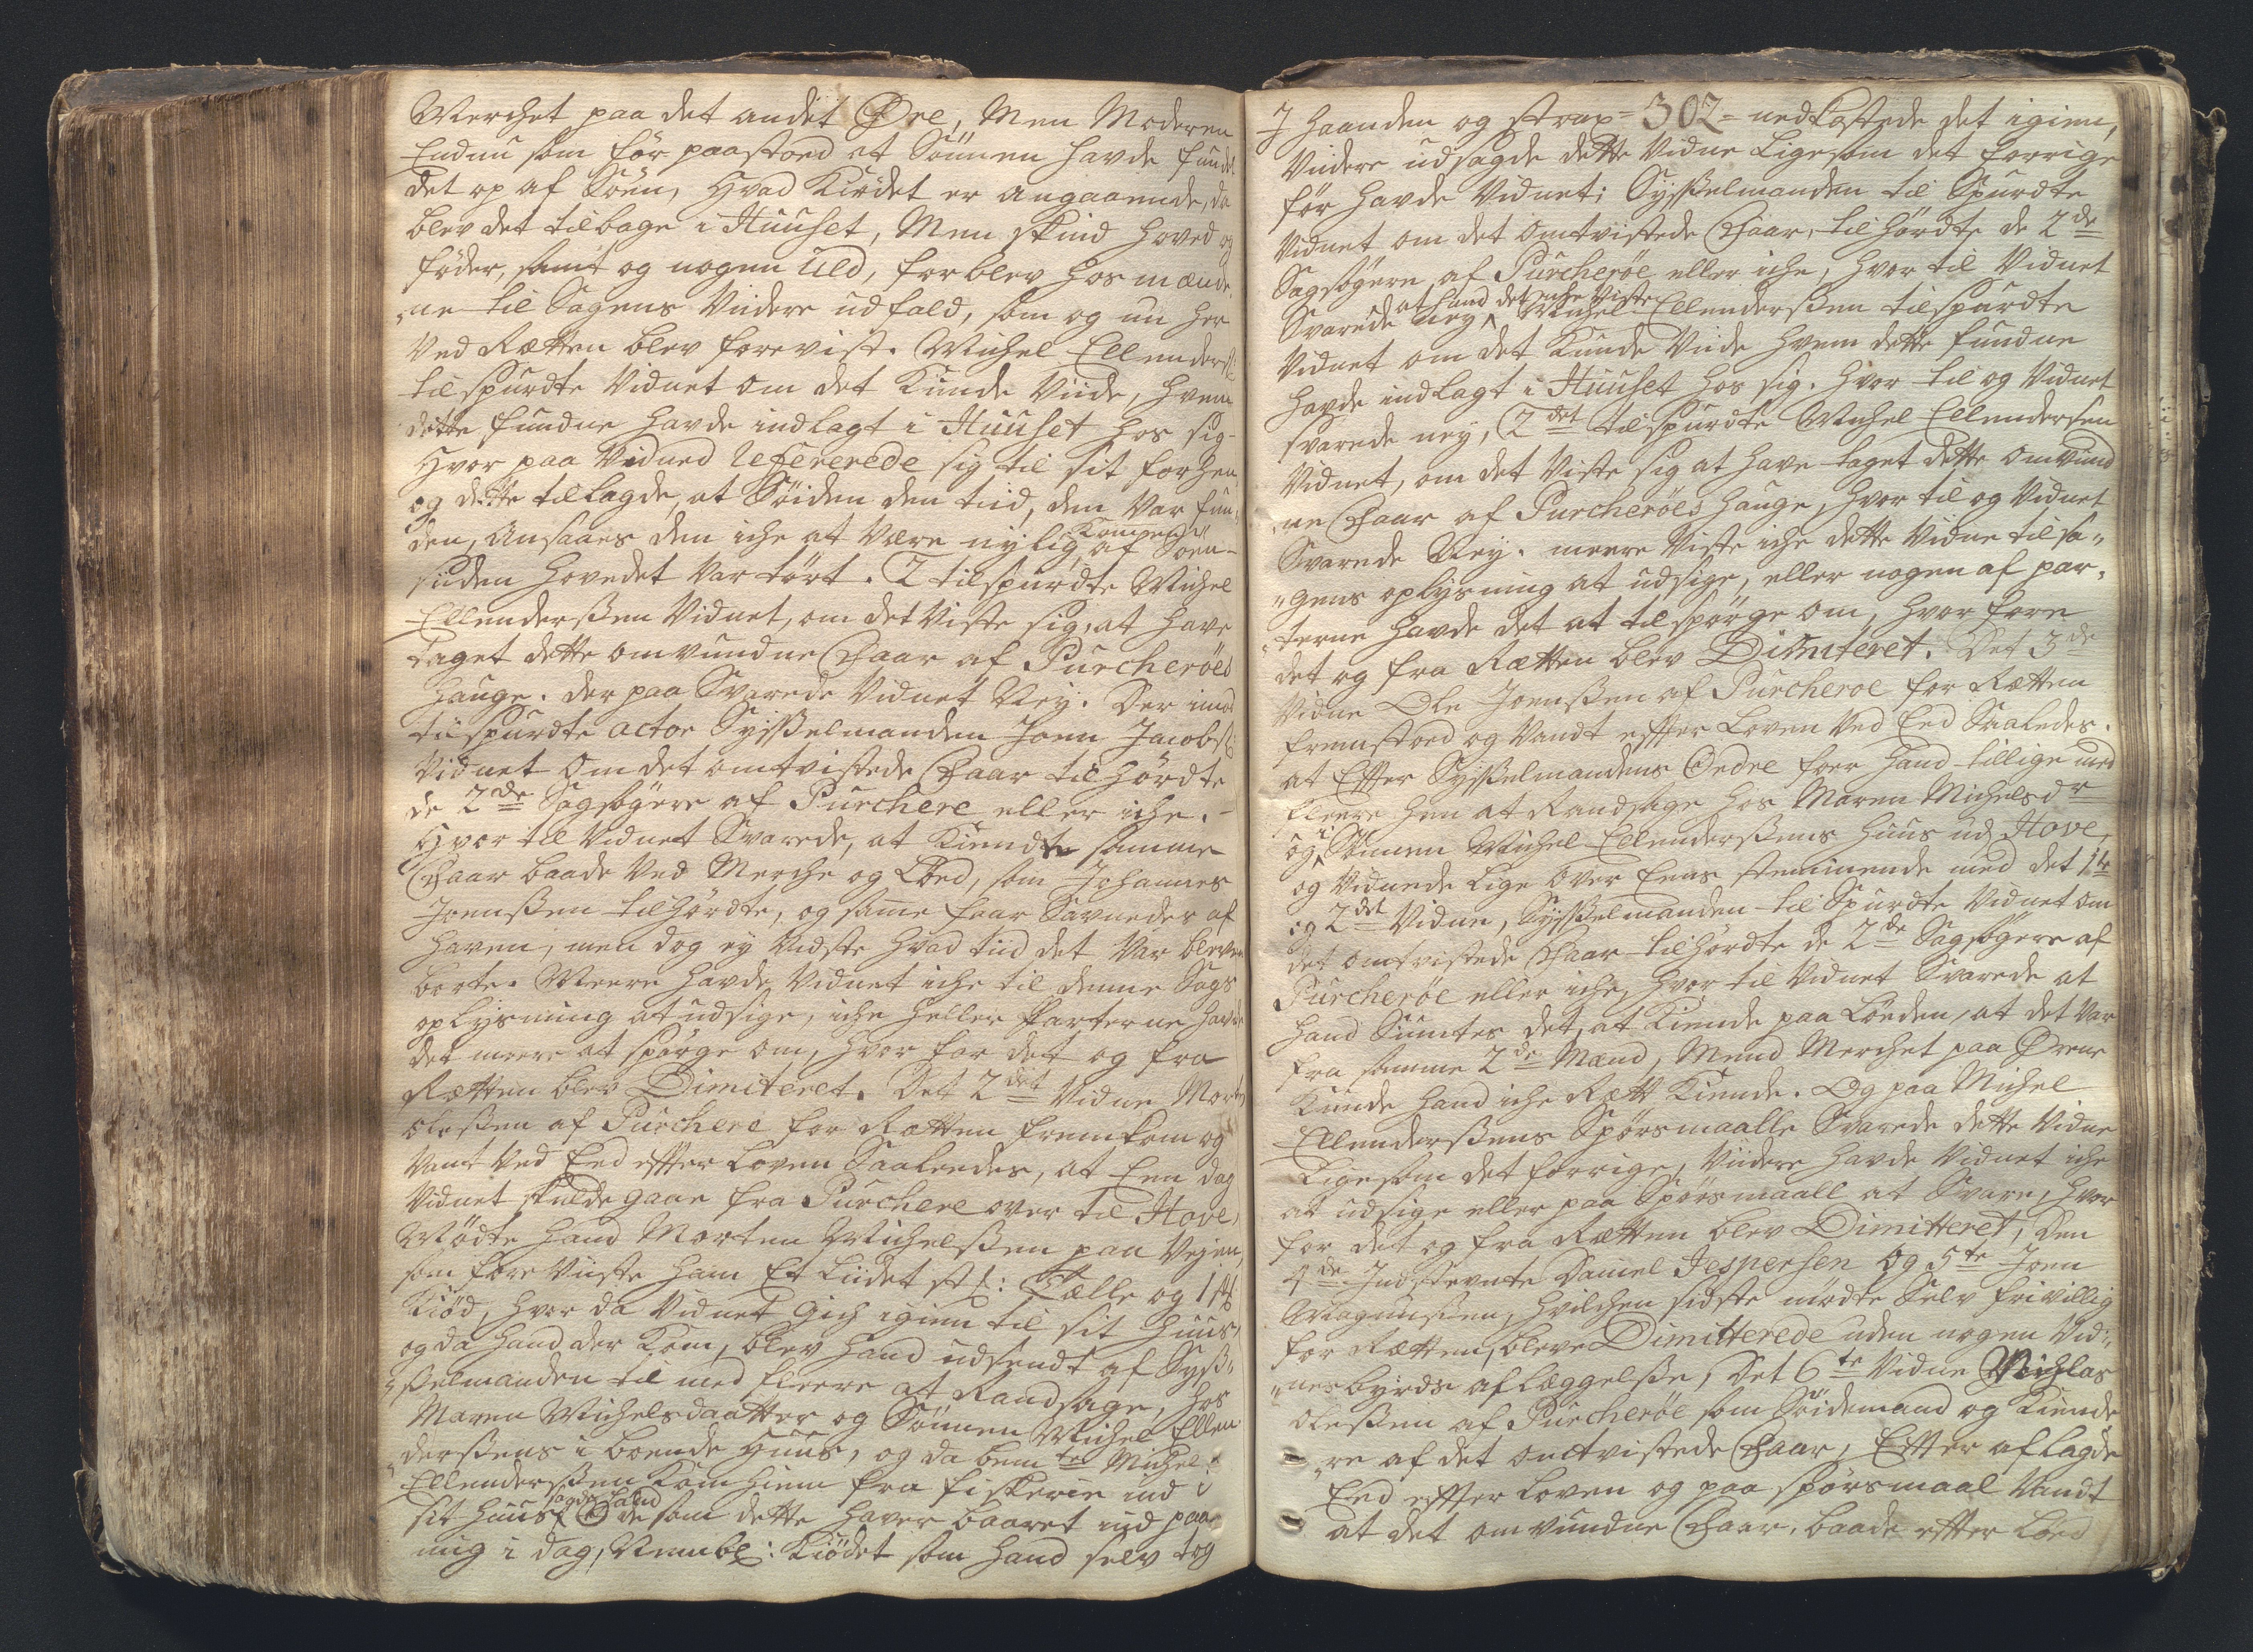 Merchet paa det andet Øre, Men Moderen
Endnu som før paastoed at Sönnen havde fundet
det op af Söen, Hvad Kiödet er angaaende, da
blev det tilbage i Huuset, Men skind hoved og
föder, samt og nogen Uld, forblev hos mænde„
„ne til Sagens Viidere udfald, som og nu her
Ved Rætten blev foreviist. Michel Ellenders:
tilspurdte Vidnet om det Kunde Viide, hvem
dette fundne havde indlagt i Huuset hos sig-
Hvor paa Vidned refererede sig til sit forhen,
og dette tillagde, at Söiden den tiid, den Var fun„
den, Ansaaes dem iche at Være nylig Kommen af Söen-
siden hovedet var tört. 2 tilspurdte Michel
Ellenderssen Vidnet, om det Viste sig, at have
taget dette omvundne Faar af Purcheröes
hauge. der paa Svarede Vidnet Nej. Der imod
tilspurdte actor Sysselmanden Joen Jacobs:
Vidnet om det omtvistede Faar til hördte
de 2de Sagsögere af Purchere eller iche.-
Hvor til Vidnet Svarede, at Kiendte samme
Faar baade Ved Merche og Löed, som Johannes
Joenssen tilhördte, og same faar Savnedes af
haven, men dog ej Vidste hvad tiid det Var bleven
borte. Meere havde Vidnet iche til denne Sags
oplysning at udsige, iche heller Parterne havde
det meere at spörge om, hvor for det og fra
Rætten blev Dimiteret. Det 2det Vidne Morten
Olessen af Purchere for Rætten fremkom og
Vant Ved Eed effter Loven Saaleedes, at Een dag
Vidnet skulde gaae fra Purchere over til Hove,
Mödte hand Morten Michelssen paa Vejen,
som foreViiste ham Et Liidet st: Tælle og 1 st
Kiöd, hvor da Vidnet Gich igien til sit Huus,
og da hand der Kom, blev hand udsendt af Syss„
„selmanden til med fleere at Randsage, hos
Maren Michelsdaatter og Sönnen Michel Ellen
„derssens i boende Huus, og da bemte Michel
Ellenderssen Kom hiem fra fiskerie ind i
sit huus sagde hand de som dette haver baaret ind paa
mig i dag, Nembl: Kiödet som hand selv tog
J haanden og strax =302= nedkastede det igien,
Viidere udsagde dette Vidne Ligesom det forrige
før havde Vidnet; Sysselmanden til Spurdte
Vidnet om det omtvistede Faar, tilhördte de 2de
Sagsögere af Purcheröe eller iche, hvor til Vidnet
Svarede nej at hand det iche Viste Michel Ellenderssen tilspurdte
Vidnet om det Kunde Viide hvem dette fundne
havde indlagt i Huuset hos sig. hvor til og Vidnet
svarede nej, 2det tilspurdte Michel Ellendersen
Vidnet, om det Viste sig at have taget dette omvund
„ne Faar af Purcheröes hauge, hvor til og Vidnet
Svarede Nej. meere Viste iche dette Vidne til sa„
„gens oplysning at udsige, eller nogen af par„
„terne havde det at tilspörge om, hvor fore
det og fra Rætten blev Dimiteret. Det 3de
Vidne Ole Joenssen af Purcheroe for Rætten
fremstoed og Vandt effter Loven Ved Eed Saaledes.
at Effter Sysselmandens Ordre foer hand tillige med
fleere hen at Randsage hos Maren Michelsdr
og i Sönnen Michel Ellenderssens huus udj Hove,
og Vidnede lige over Eens stemmende med det 1te
og 2det Vidne, Sysselmanden til Spurdte Vidnet om
det omtvistede Faar tilhördte de 2de Sagsögere af
Purcheröe eller iche, hvor til Vidnet Svarede at
hand Siuntes det, at Kiende paa Löeden, at det Var
fra samme 2de Mænd, Mend Merchet paa Ørene
Kunde hand iche Rætt Kiende. Og paa Michel
Ellenderssens Spörsmaalle Svarede dette Vidne
Ligesom det forrige, Viidere havde Vidnet iche
at udsige eller paa Spörsmaall at Svare, hvor
for det og fra Rætten blev Dimitteret, Den
4de Indstevnte Daniel Jespersen og 5te Joen
Magnussen, hvilchen sidste mödte Selv frivillig
for Rætten, bleve Dimitterede uden nogen Vid„
„nesbyrds aflæggelsse, Det 6te Vidne Nichlas
Olessen af Purcheröe som Söidemand og Kiende
„re af det omtvistede Faar, Effter aflagde
Eed effter Loven og paa spörsmaal Vandt
at det omvundne Faar, baade effter Löed